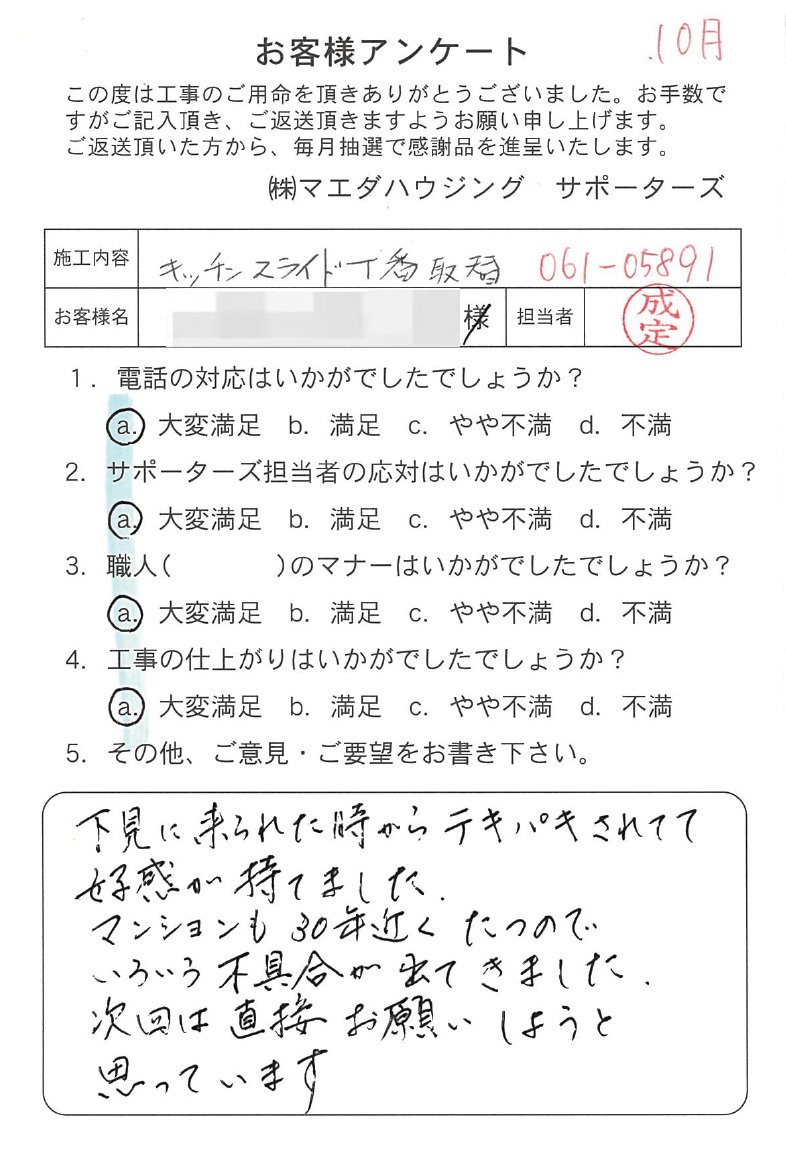 10月
お客様アンケート
この度は工事のご用命を頂きありがとうございました。お手数で
すがご記入頂き、ご返送頂きますようお願い申し上げます。
ご返送頂いた方から、毎月抽選で感謝品を進呈いたします。
㈱マエダハウジング　サポーターズ
施工内容 キッチンスライド丁番取替 061-05891
お客様名 様 担当者 成定
1. 電話の対応はいかがでしたでしょうか？
a. 大変満足 b. 満足 c. やや不満 d. 不満
2. サポーターズ担当者の応対はいかがでしたでしょうか？
a. 大変満足 b. 満足 c. やや不満 d. 不満
3. 職人(　　　　)のマナーはいかがでしたでしょうか？
a. 大変満足 b. 満足 c. やや不満 d. 不満
4. 工事の仕上がりはいかがでしたでしょうか？
a. 大変満足 b. 満足 c. やや不満 d. 不満
5. その他、ご意見・ご要望をお書き下さい。
下見に来られた時からテキパキされてて
好感が持てました.
マンションも30年近くたつので
いろいろ不具合が出てきました.
次回は直接お願いしようと
思っています